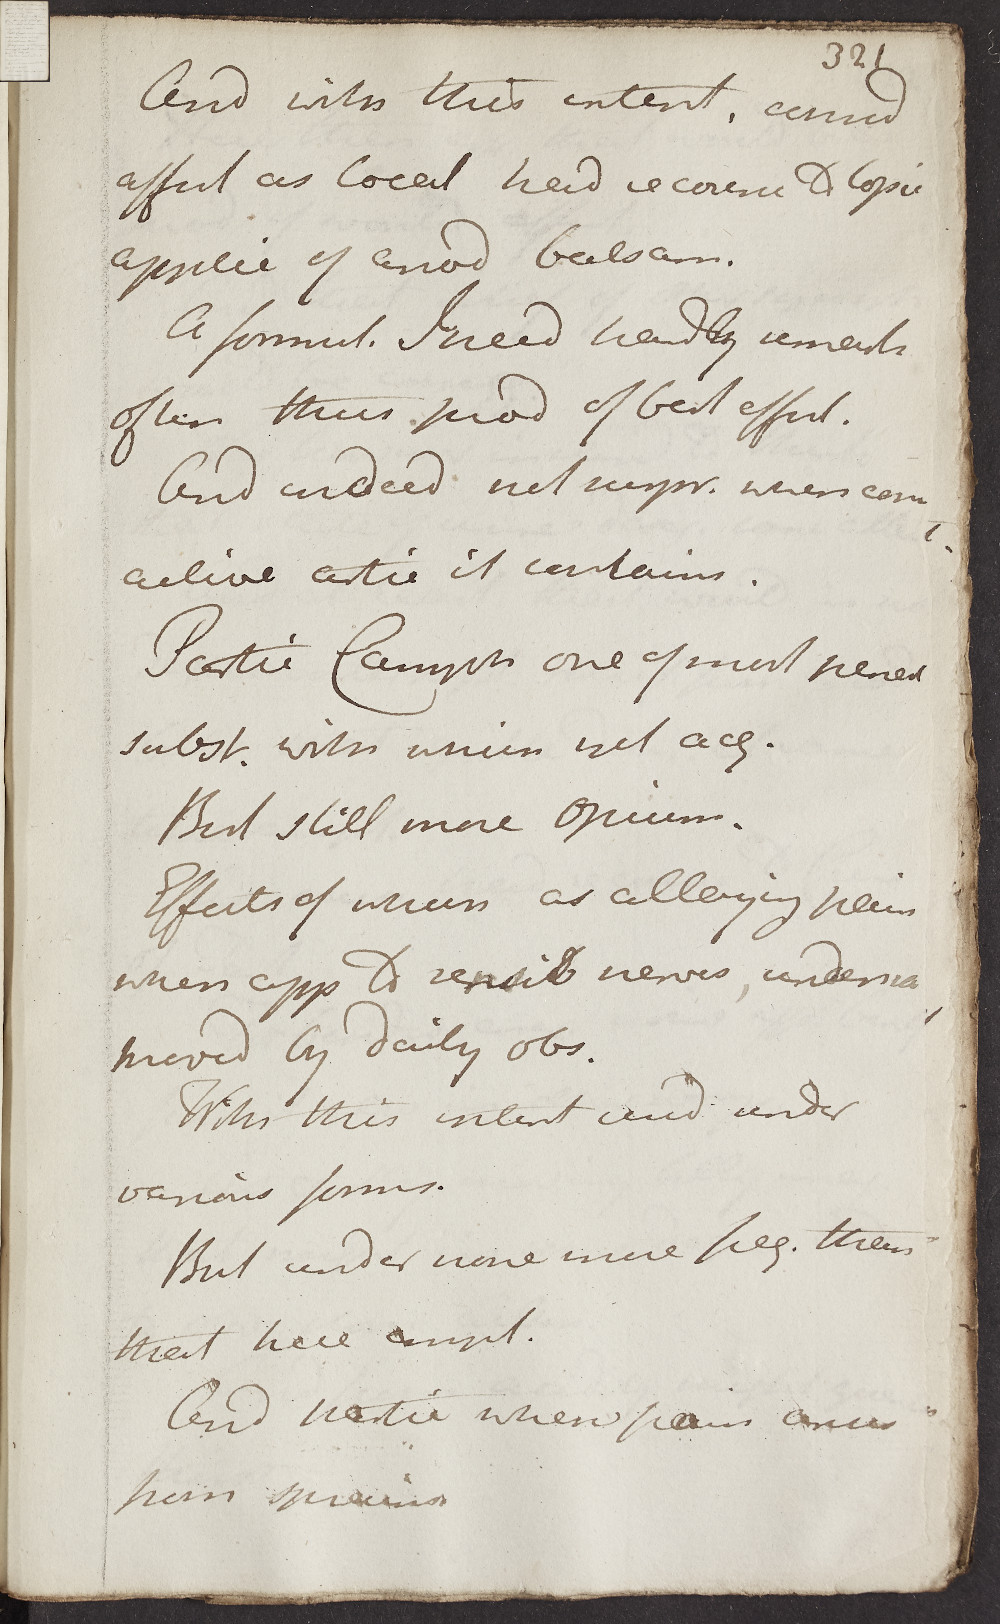 321
And with this intent, consid
affect as local had recourse to topic
applic of anod balsam.
A formul. I need hardly remark
often thus prod of best effect.
And indeed not surpr. when cons
active artic it contains.
Partic Camph one of most penet
subst. with which yet acq.
But still more Opium.
Effects of which as allaying pain
when app to sensib nerves, understa
proved by daily obs.
With this intent and under
various forms.
But under none more freq. than
that here empl.
And partic when pain arises
from sprains